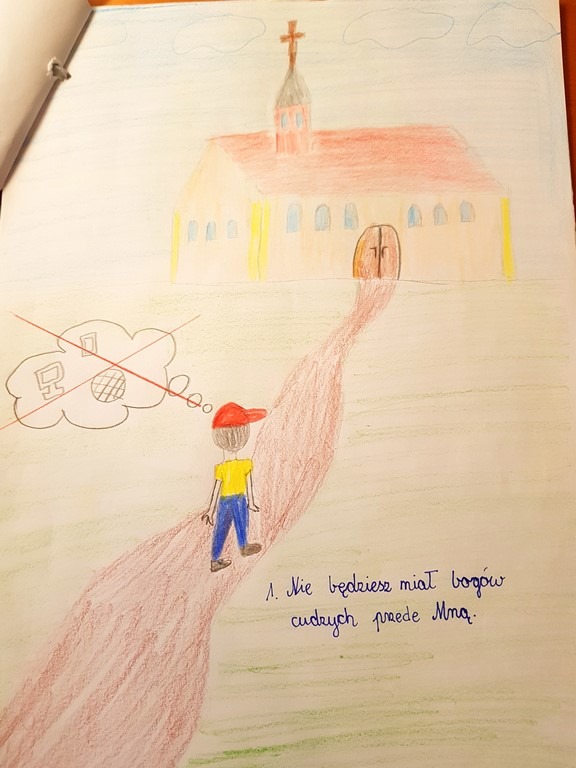 1. Nie będziesz miał bogów
cudzych przede Mną.